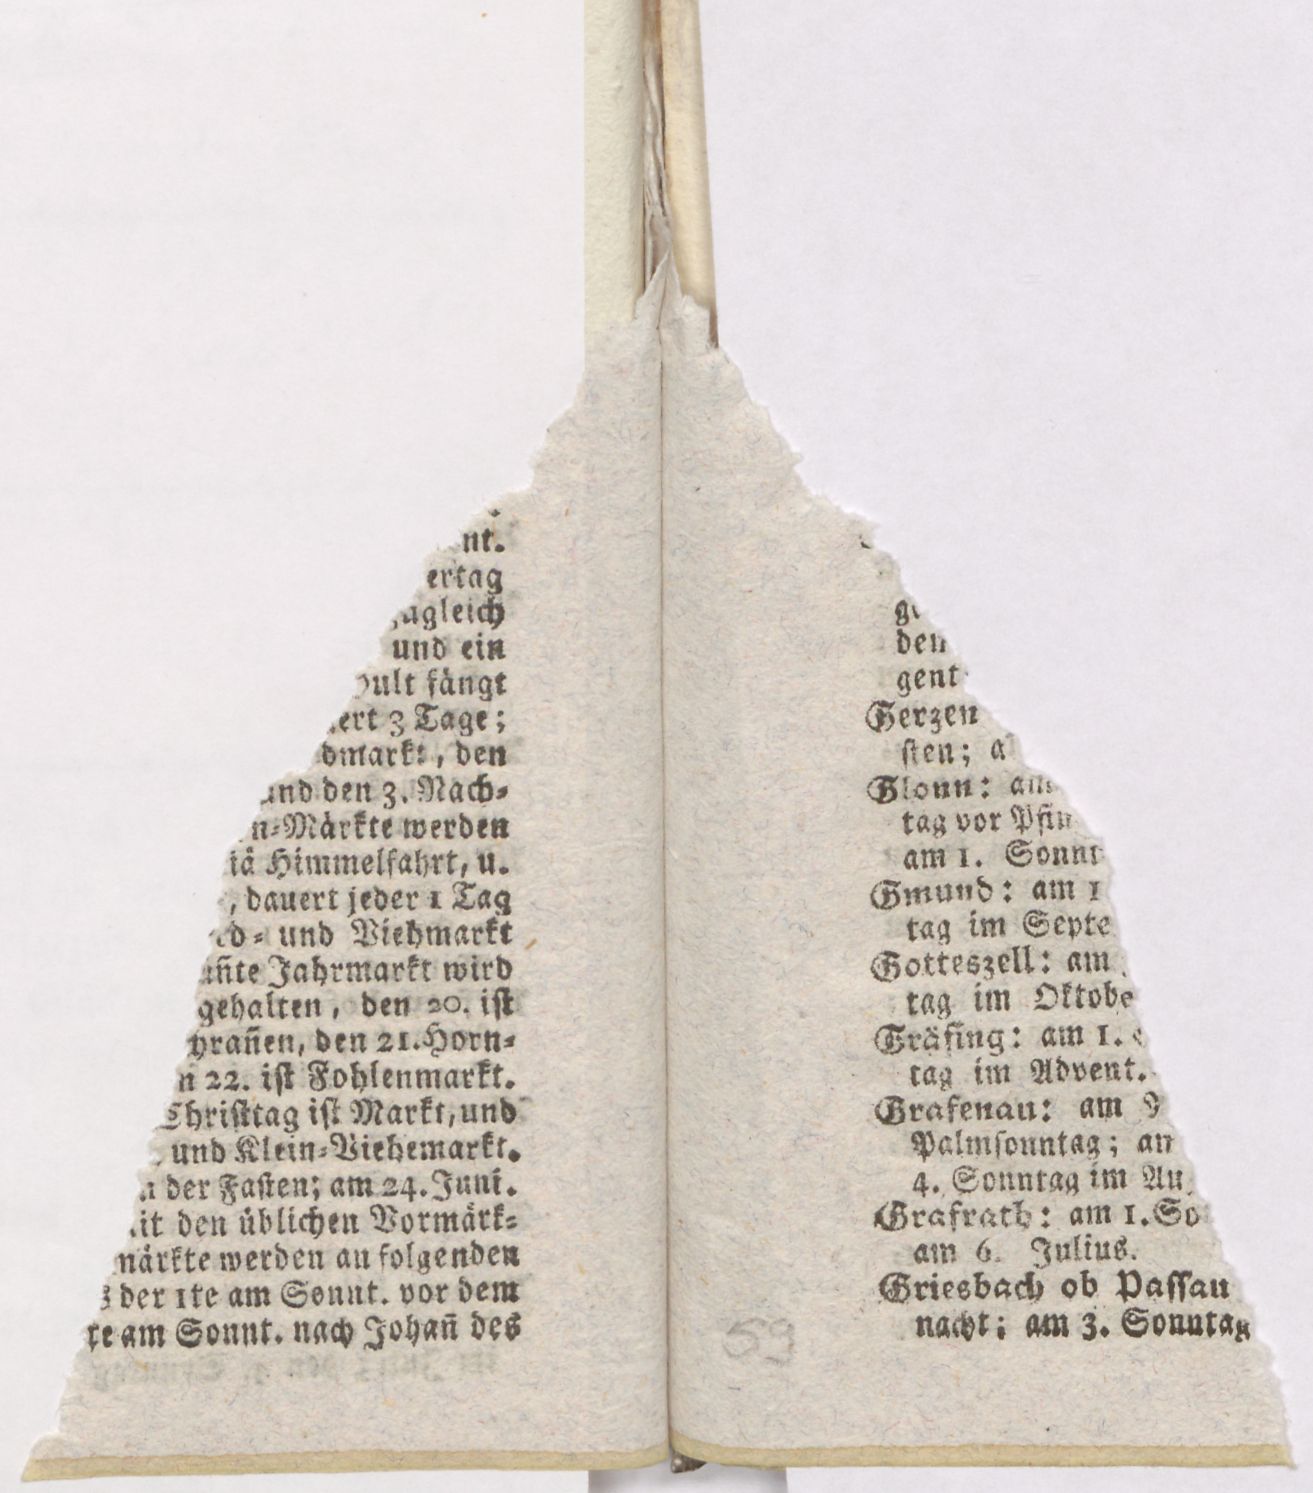 nt.
ertag
zugleich
und ein
dult fängt
ert 3 Tage;
dmarkt, den
und den 3. Nach-
n-Märkte werden
iä Himmelfahrt, u.
, dauert jeder 1 Tag
d- und Viehmarkt
añte Jahrmarkt wird
gehalten, den 20. ist
yrañen, den 21. Horn-
n 22. ist Fohlenmarkt.
Christtag ist Markt, und
, und Klein-Viehemarkt.
n der Fasten; am 24. Juni.
it den üblichen Vormärk-
märkte werden an folgenden
der 1te am Sonnt. vor dem
te am Sonnt. nach Johañ des
den
gent
Herzen
sten; a
Glonn: am
tag vor Pfin
am 1. Sonnt
Gmund: am 1
tag im Septe
Gotteszell: am
tag im Oktobe
Gräfing: am 1.
tag im Advent.
Grafenau: am 9
Palmsonntag; am
4. Sonntag im Au
Grafrath: am 1. So
am 6. Julius.
Griesbach ob Passau
nacht; am 3. Sonntag
59